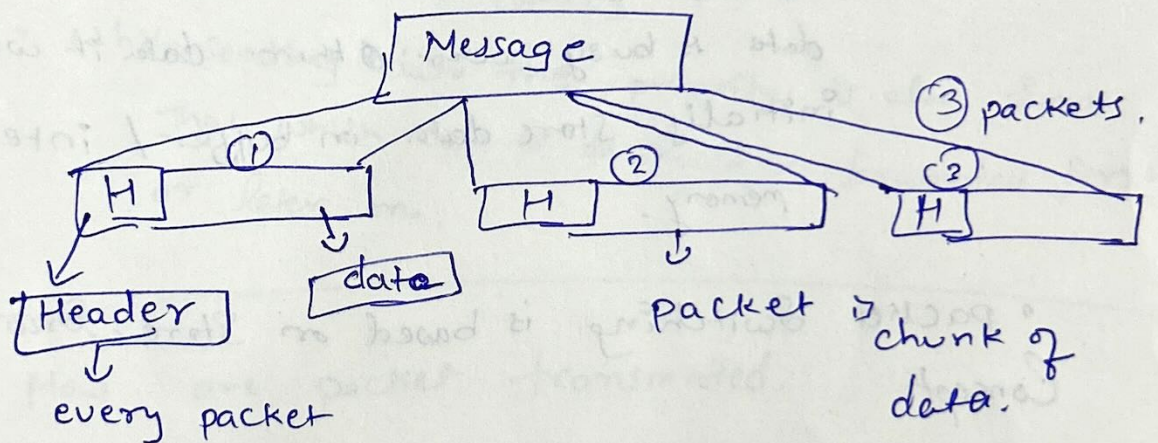 Message
③ packets.
①
②
③
H
H
H
data
Header
packet is
chunk of
data.
every packet